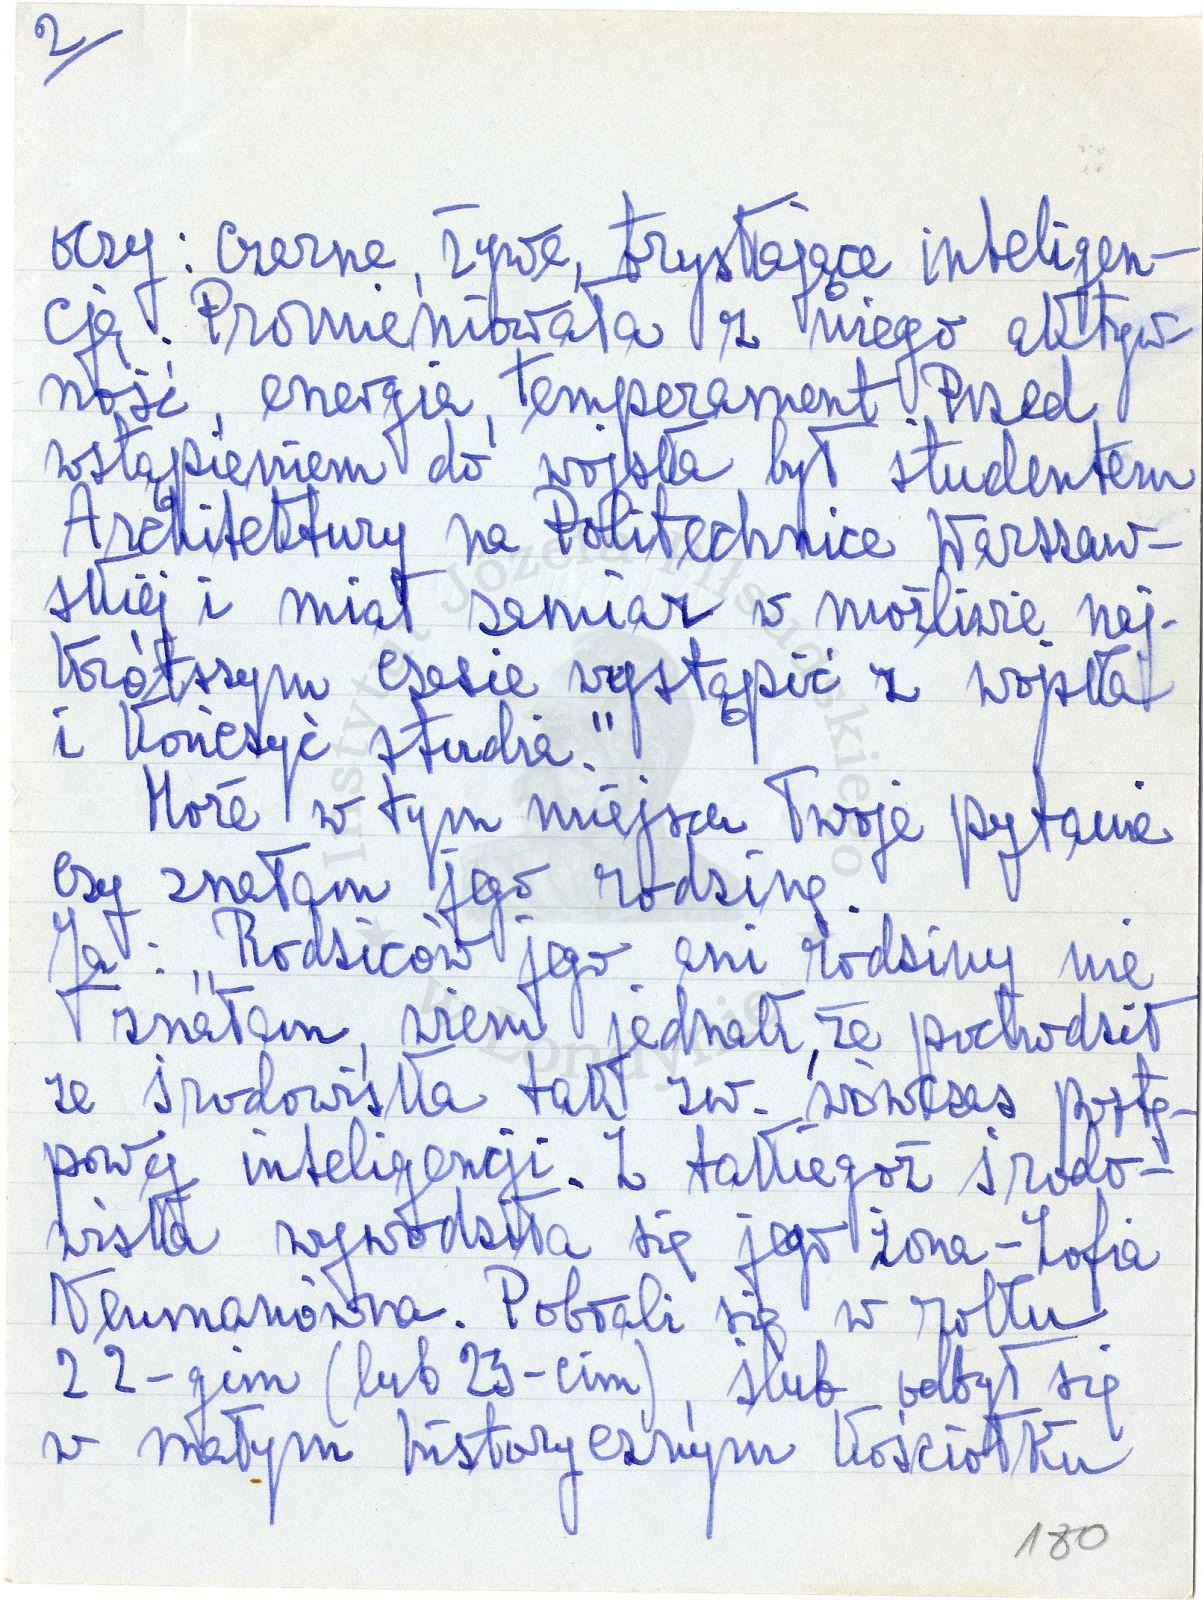 2/
oczy: czarne, żywe, tryskające inteligen-
cją. Promieniowała z niego aktyw-
ność, energia, temperament. Przed
wstąpieniem do wojska był studentem
Architektury na Politechnice Warszaw-
skiej i miał zamiar w możliwie naj-
krótszym czasie wystąpić z wojska
i kończyć studia."
Może w tym miejscu Twoje pytanie
czy znałam jego rodzinę
Ja: „Rodziców jego ani rodziny nie
znałam, wiem jednak, że pochodził
ze środowiska tak zw. wówczas postę-
powej inteligencji. Z takiegoż środo-
wiska wywodziła się jego żona - Zofia
Neumanówna. Pobrali się w roku
22-gim (lub 23-cim), ślub odbył się
w małym historycznym kościołku
180
Instytut Józefa Piłsudskiego
w Londynie